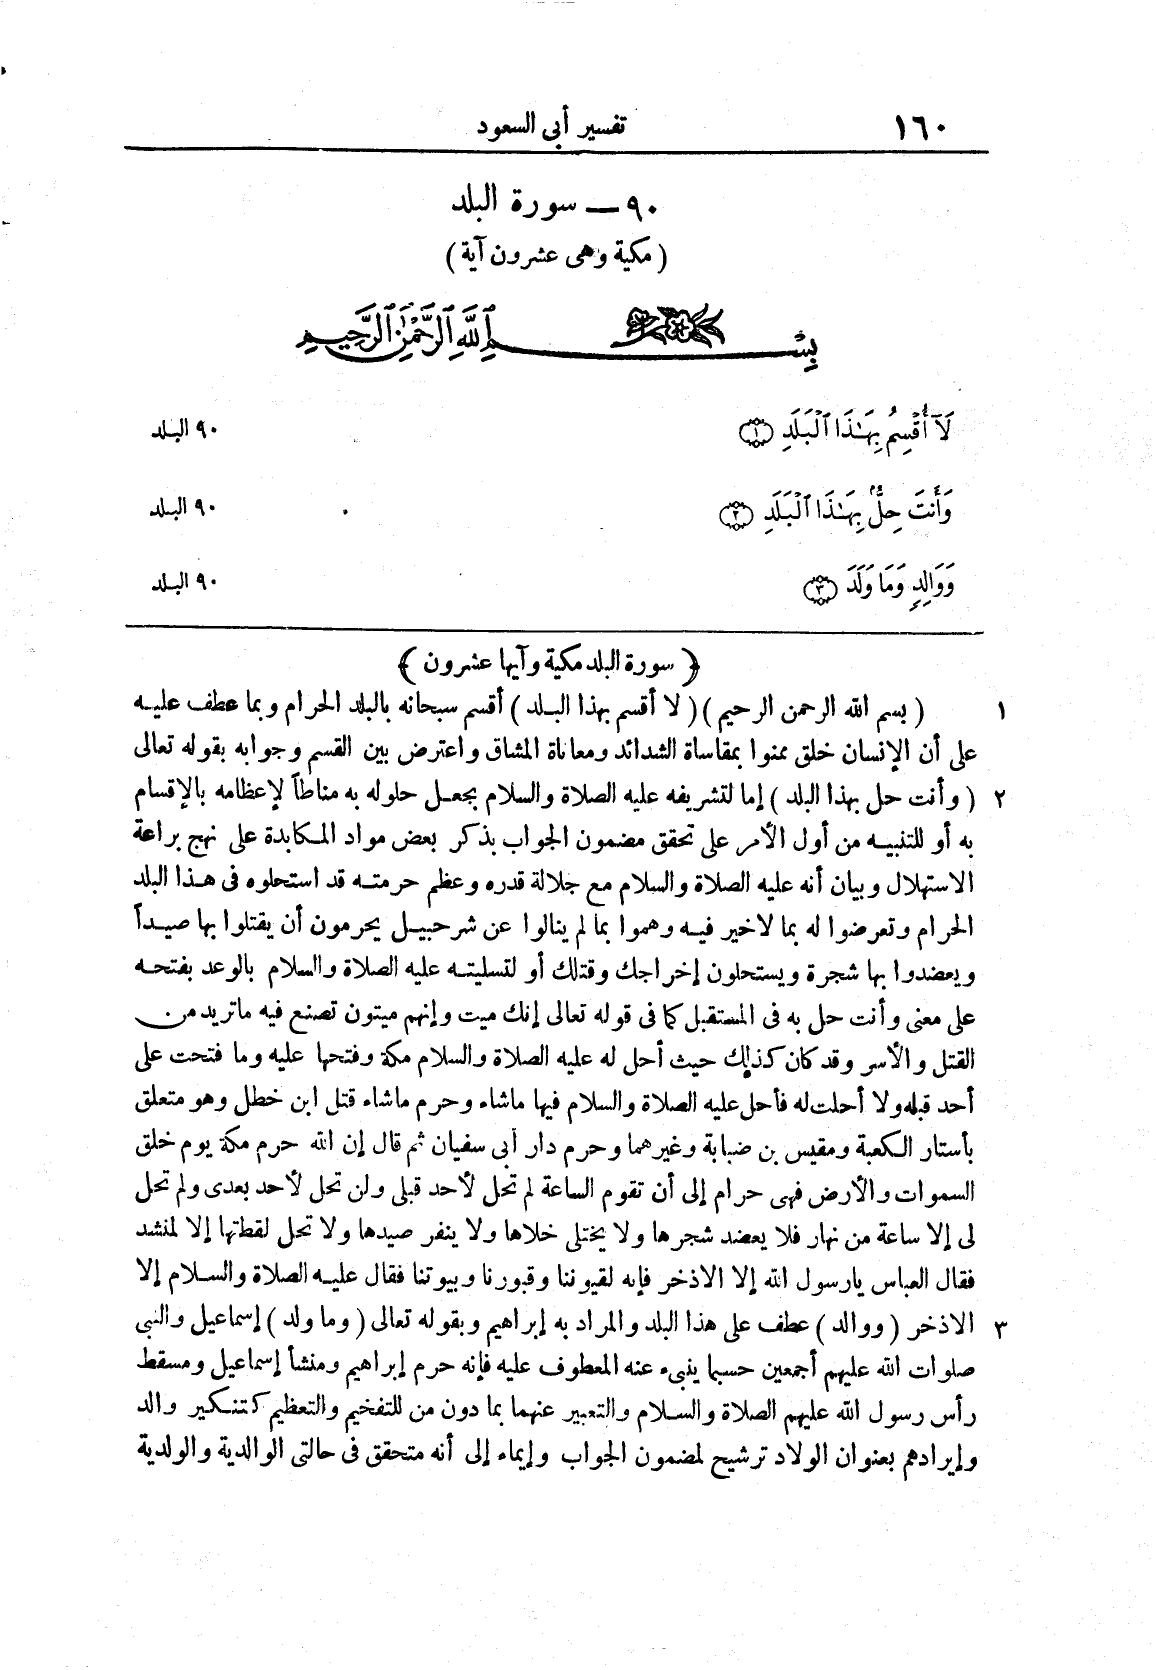 ١٦٠
تفسير أبى السعود
٩٠ — سورة البلد
( مكية وهى عشرون آية )
بِسْمِ ٱللَّهِ ٱلرَّحْمَٰنِ ٱلرَّحِيمِ
لَآ أُقْسِمُ بِهَٰذَا ٱلْبَلَدِ ﴿١﴾ ٩٠ البلد
وَأَنتَ حِلٌّۢ بِهَٰذَا ٱلْبَلَدِ ﴿٢﴾ ٩٠ البلد
وَوَالِدٍ وَمَا وَلَدَ ﴿٣﴾ ٩٠ البلد
﴿ سورة البلد مكية وآيها عشرون ﴾
١ ( بسم الله الرحمن الرحيم ) ( لا أقسم بهذا البلد ) أقسم سبحانه بالبلد الحرام وبما عطف عليه
على أن الإنسان خلق ممنوا بمقاساة الشدائد ومعاناة المشاق واعترض بين القسم وجوابه بقوله تعالى
٢ ( وأنت حل بهذا البلد ) إما لتشريفه عليه الصلاة والسلام بجعل حلوله به مناطاً لإعظامه بالإقسام
به أو للتنبيه من أول الأمر على تحقق مضمون الجواب بذكر بعض مواد المكابدة على نهج براعة
الاستهلال وبيان أنه عليه الصلاة والسلام مع جلالة قدره وعظم حرمته قد استحلوه فى هذا البلد
الحرام وتعرضوا له بما لا خير فيه وهموا بما لم ينالوا عن شرحبيل يحرمون أن يقتلوا بها صيداً
ويعضدوا بها شجرة ويستحلون إخراجك وقتلك أو لتسليته عليه الصلاة والسلام بالوعد بفتحه
على معنى وأنت حل به فى المستقبل كما فى قوله تعالى إنك ميت وإنهم ميتون تصنع فيه ما تريد من
القتل والأسر وقد كان كذلك حيث أحل له عليه الصلاة والسلام مكة وفتحها عليه وما فتحت على
أحد قبله ولا أحلت له فأحل عليه الصلاة والسلام فيها ما شاء وحرم ما شاء قتل ابن خطل وهو متعلق
بأستار الكعبة ومقيس بن ضبابة وغيرهما وحرم دار أبى سفيان ثم قال إن الله حرم مكة يوم خلق
السموات والأرض فهى حرام إلى أن تقوم الساعة لم تحل لأحد قبلى ولن تحل لأحد بعدى ولم تحل
لى إلا ساعة من نهار فلا يعضد شجرها ولا يختلى خلاها ولا ينفر صيدها ولا تحل لقطتها إلا لمنشد
فقال العباس يارسول الله إلا الاذخر فإنه لقيوننا وقبورنا وبيوتنا فقال عليه الصلاة والسلام إلا
٣ الاذخر ( ووالد ) عطف على هذا البلد والمراد به إبراهيم وبقوله تعالى ( وما ولد ) إسماعيل والنبى
صلوات الله عليهم أجمعين حسبما ينبىء عنه المعطوف عليه فإنه حرم إبراهيم ومنشأ إسماعيل ومسقط
رأس رسول الله عليهم الصلاة والسلام والتعبير عنهما بما دون من للتفخيم والتعظيم كتنكير والد
وإيرادهم بعنوان الولاد ترشيح لمضمون الجواب وإيماء إلى أنه متحقق فى حالتى الوالدية والولدية